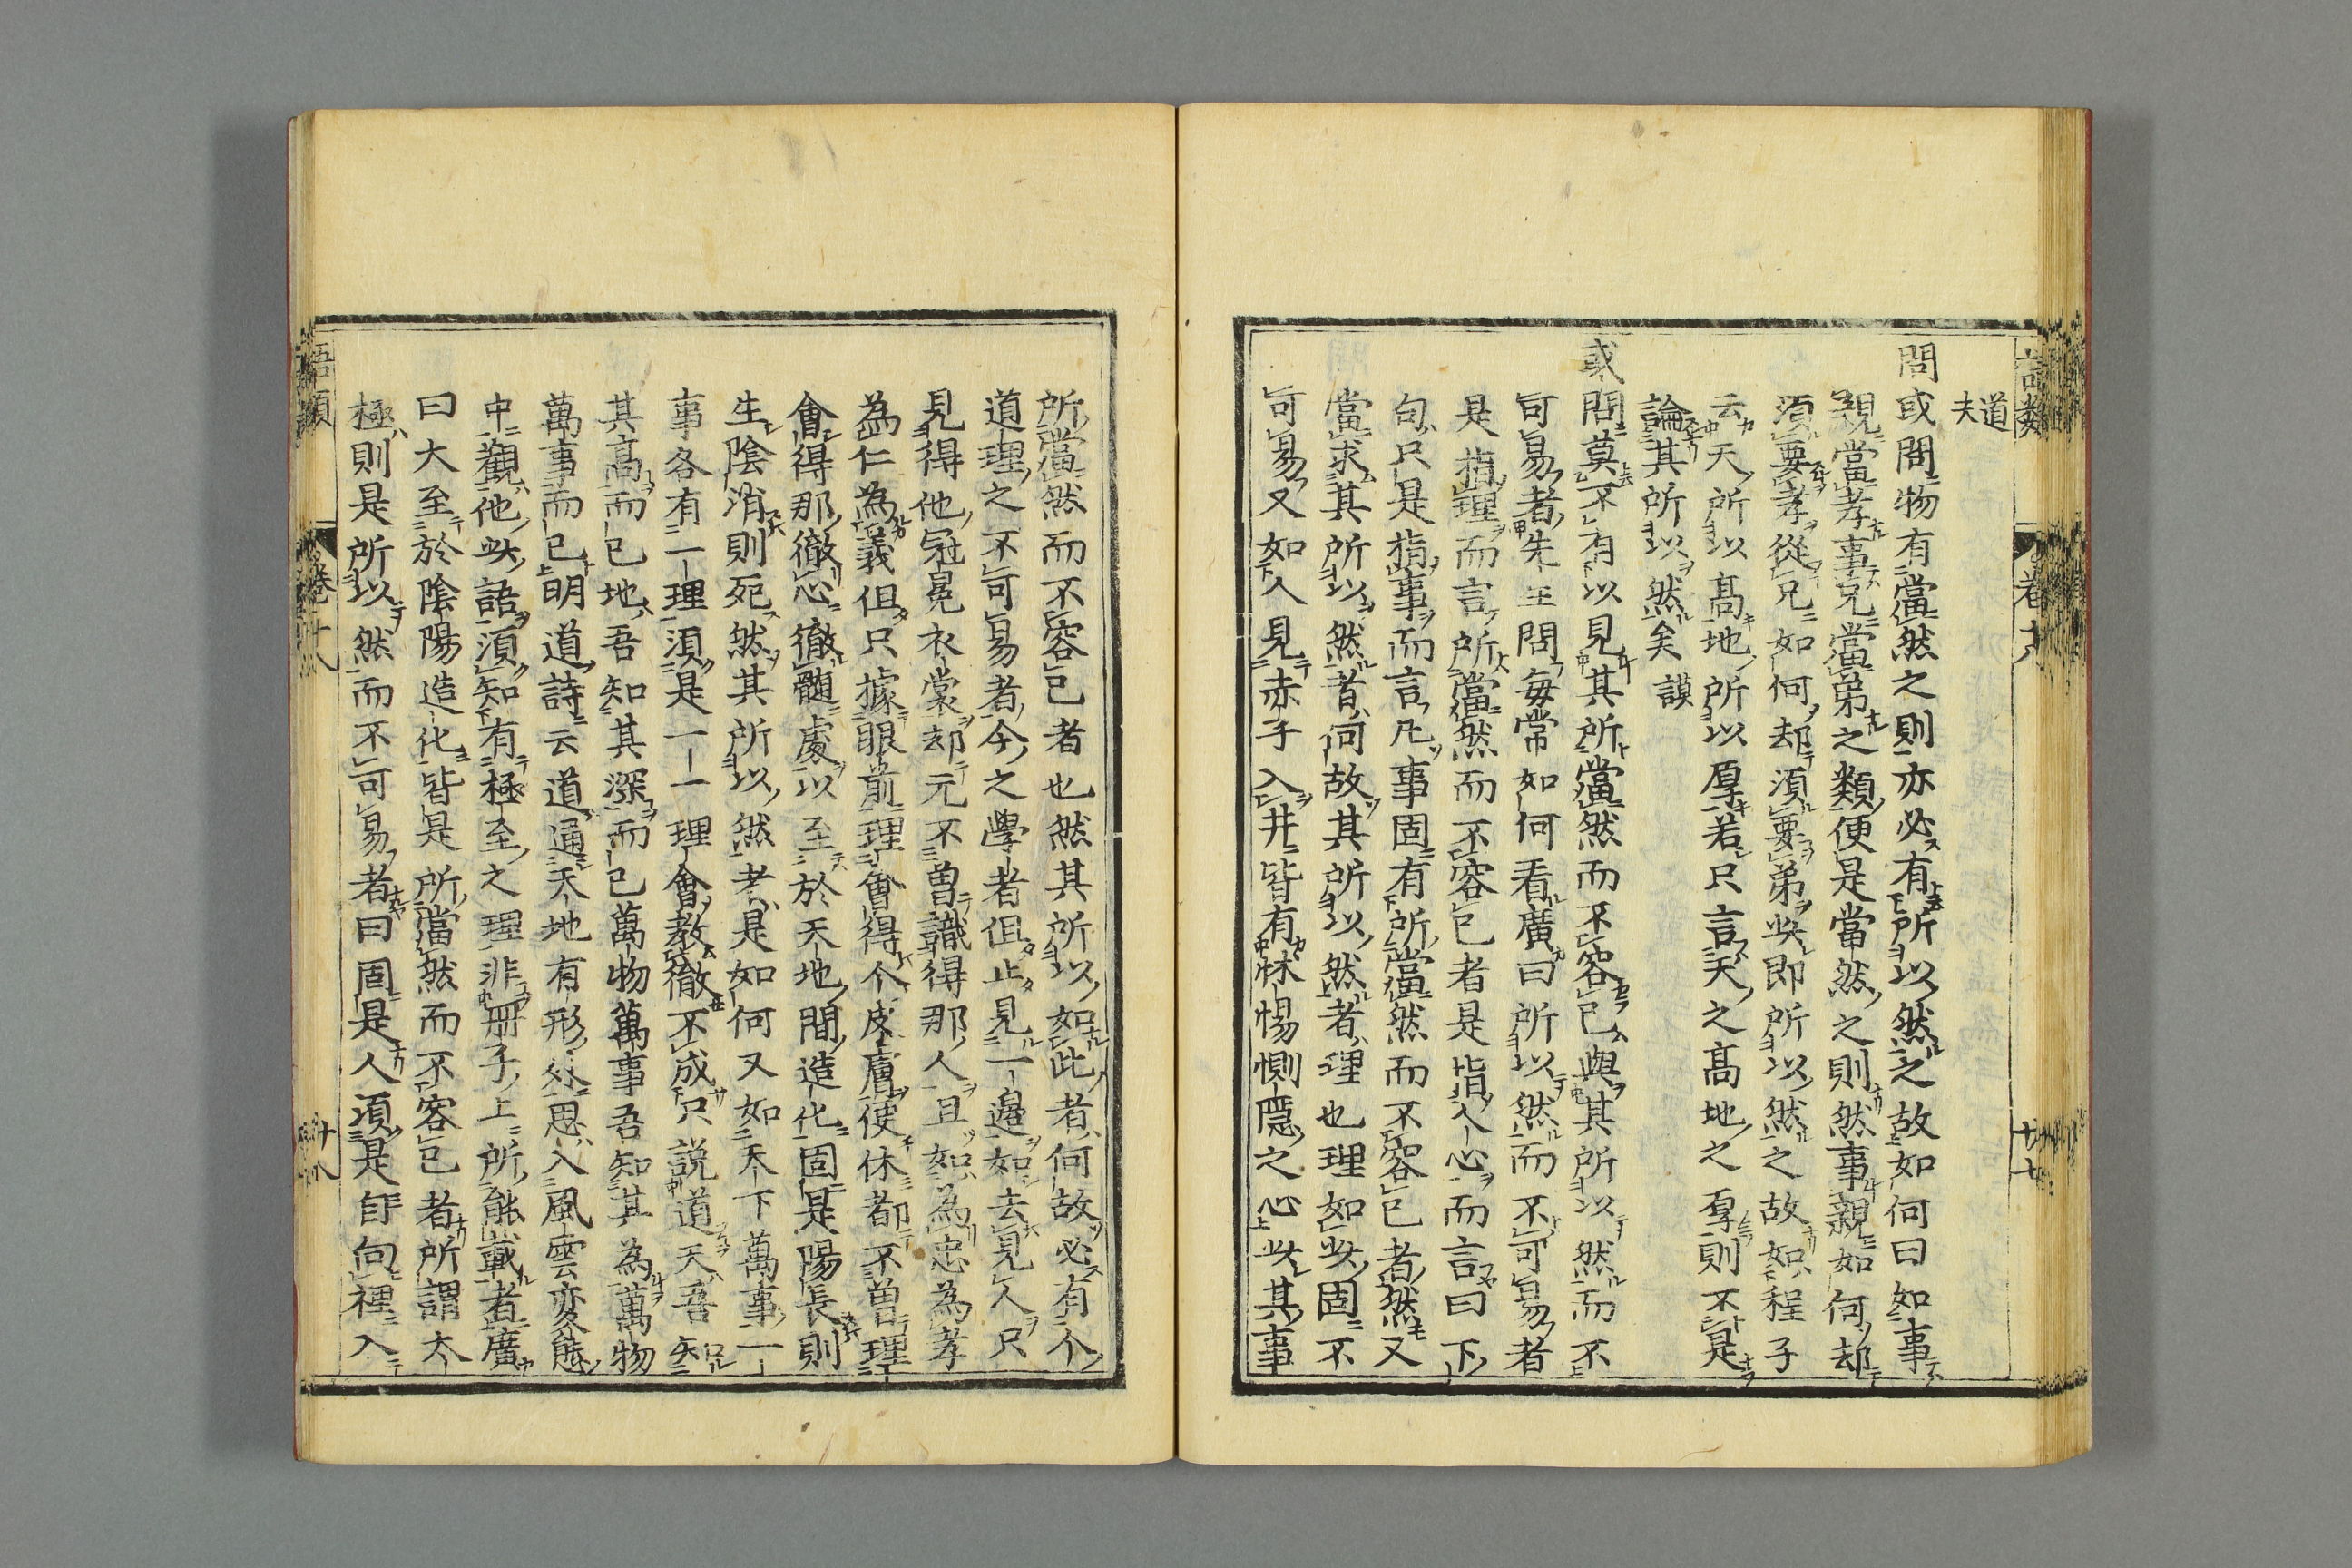 語類 卷十八 十七
道夫
問或問物有當然之則亦必有所以然之故如何曰如事
親當孝事兄當弟之類便是當然之則然事親如何却
須要孝從兄如何却須要弟此即所以然之故如程子
云天所以高地所以厚若只言天之高地之厚則不是
論其所以然矣 謨
或問莫不有以見其所當然而不容已與其所以然而不
可易者先生問每常如何看廣曰所以然而不可易者
是指理而言所當然而不容已者是指人心而言曰下
句只是指事而言凡事固有所當然而不容已者然又
當求其所以然者何故其所以然者理也理如此固不
可易又如人見赤子入井皆有怵惕惻隱之心此其事
所當然而不容已者也然其所以如此者何故必有个
道理之不可易者今之學者但止見一邊如去見人只
見得他冠冕衣裳却元不曽識得那人且如為忠為孝
為仁為義但只據眼前理會得个皮膚便休都不曽理
會得那徹心徹髓處以至於天地間造化固是陽長則
生陰消則死然其所以然者是如何又如天下萬事一
事各有一理須是一一理會教徹不成只説道天吾知
其高而已地吾知其深而已萬物萬事吾知其為萬物
萬事而已明道詩云道通天地有形外思入風雲変態
中觀他此語須知有極至之理非册子上所能載者廣
曰大至於陰陽造化皆是所當然而不容已者所謂太
極則是所以然而不可易者曰固是人須是自向裡入
語類 卷十八 十八